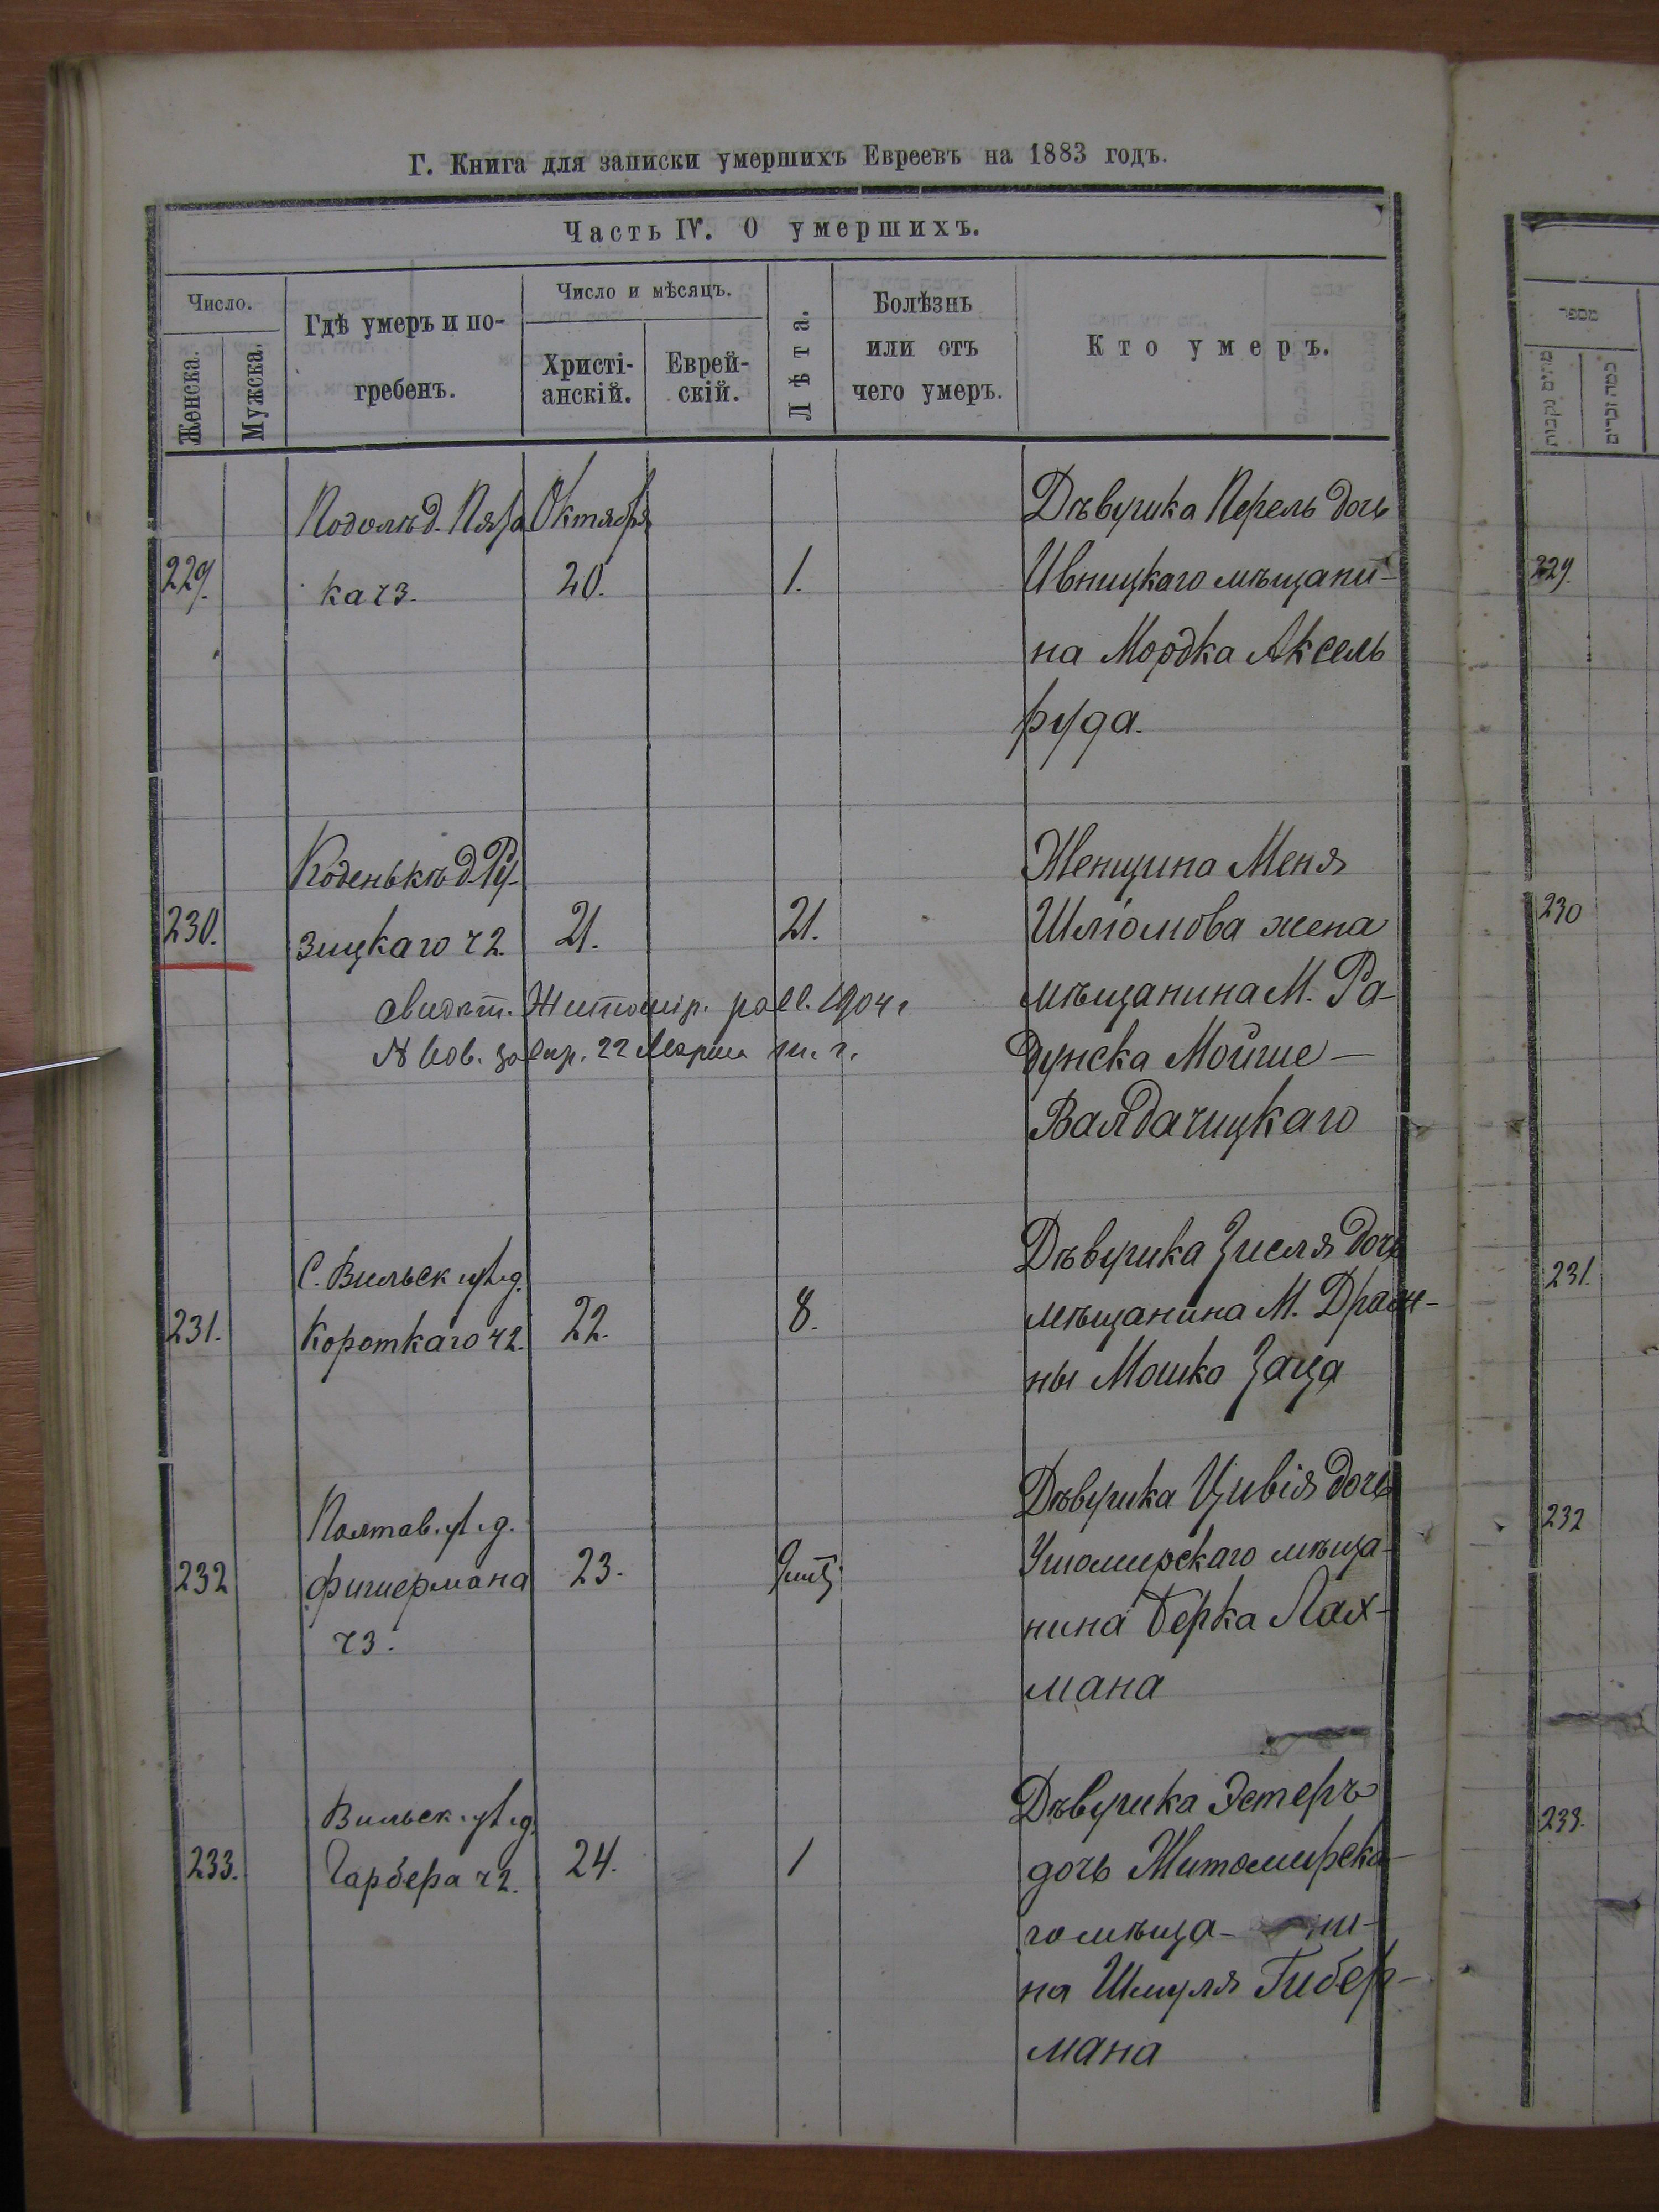 Г. Книга для записки умершихъ Евреевъ на 1883 годъ.
Часть IV. О умершихъ.
Число.
Женска.
Мужска.
Гдѣ умеръ и по-
гребенъ.
Число и мѣсяцъ.
Христі-
анскій.
Еврей-
скій.
Лѣта.
Болѣзнь
или отъ
чего умеръ.
Кто умеръ.
229.
ка ч3.
Октября
20.
1.
Дѣвушка Перель дочь
Ивницкаго мѣщани-
на Мордка Аксель
руда.
230.
зицкаго ч2.
21.
21.
Женщина Меня
Шліомова жена
мѣщанина М. Ра-
дунска Мойше
Валдачицкаго
1904 г
22 Марта т. г.
231.
С. Вильск. ул. д.
Короткаго ч2.
22.
8.
Дѣвушка Зисля дочь
мѣщанина М.
ны Мошко Заца
232
Полтав. ул. д.
Фишермана
ч3.
23.
Дѣвушка Цивія дочь
Ушомирскаго мѣща-
нина Берка Лах-
мана
233.
Вильск. ул. д.
Гарбера ч2.
24.
1
Дѣвушка Эстеръ
дочь Житомирска-
го мѣща- ни-
на Шмуля Гибер-
мана
מספר
229.
230
231.
232
233.